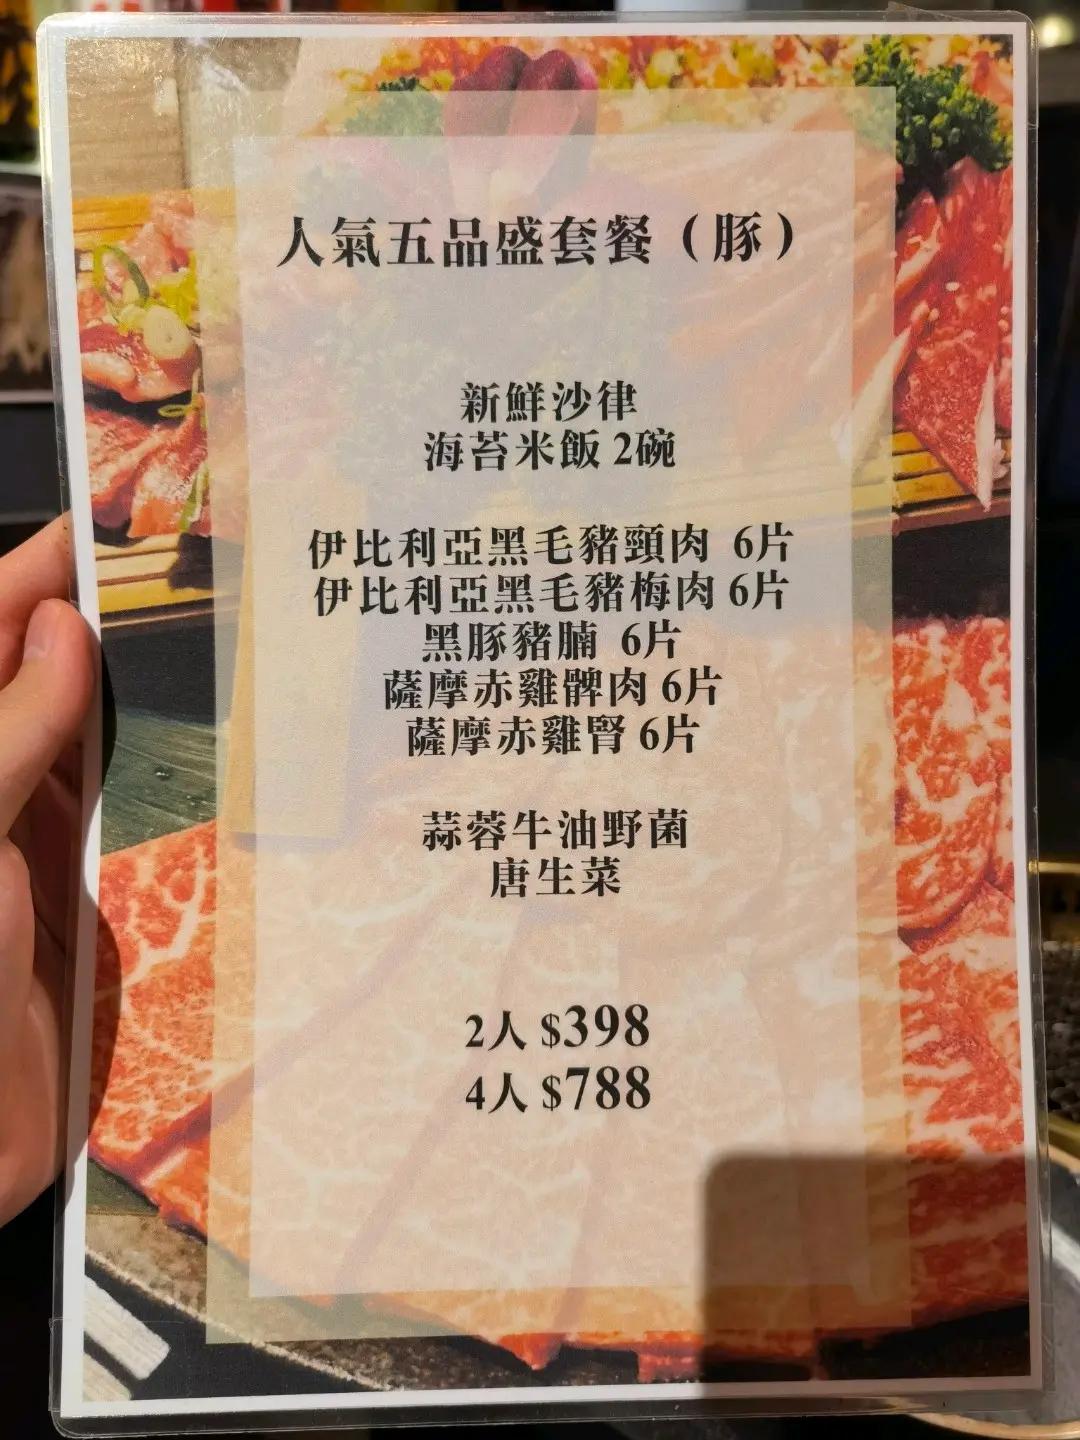 人氣五品盛套餐（豚）
新鮮沙律
海苔米飯 2碗
伊比利亞黑毛豬頸肉 6片
伊比利亞黑毛豬梅肉 6片
黑豚豬腩 6片
薩摩赤雞髀肉 6片
薩摩赤雞腎 6片
蒜蓉牛油野菌
唐生菜
2人 $398
4人 $788